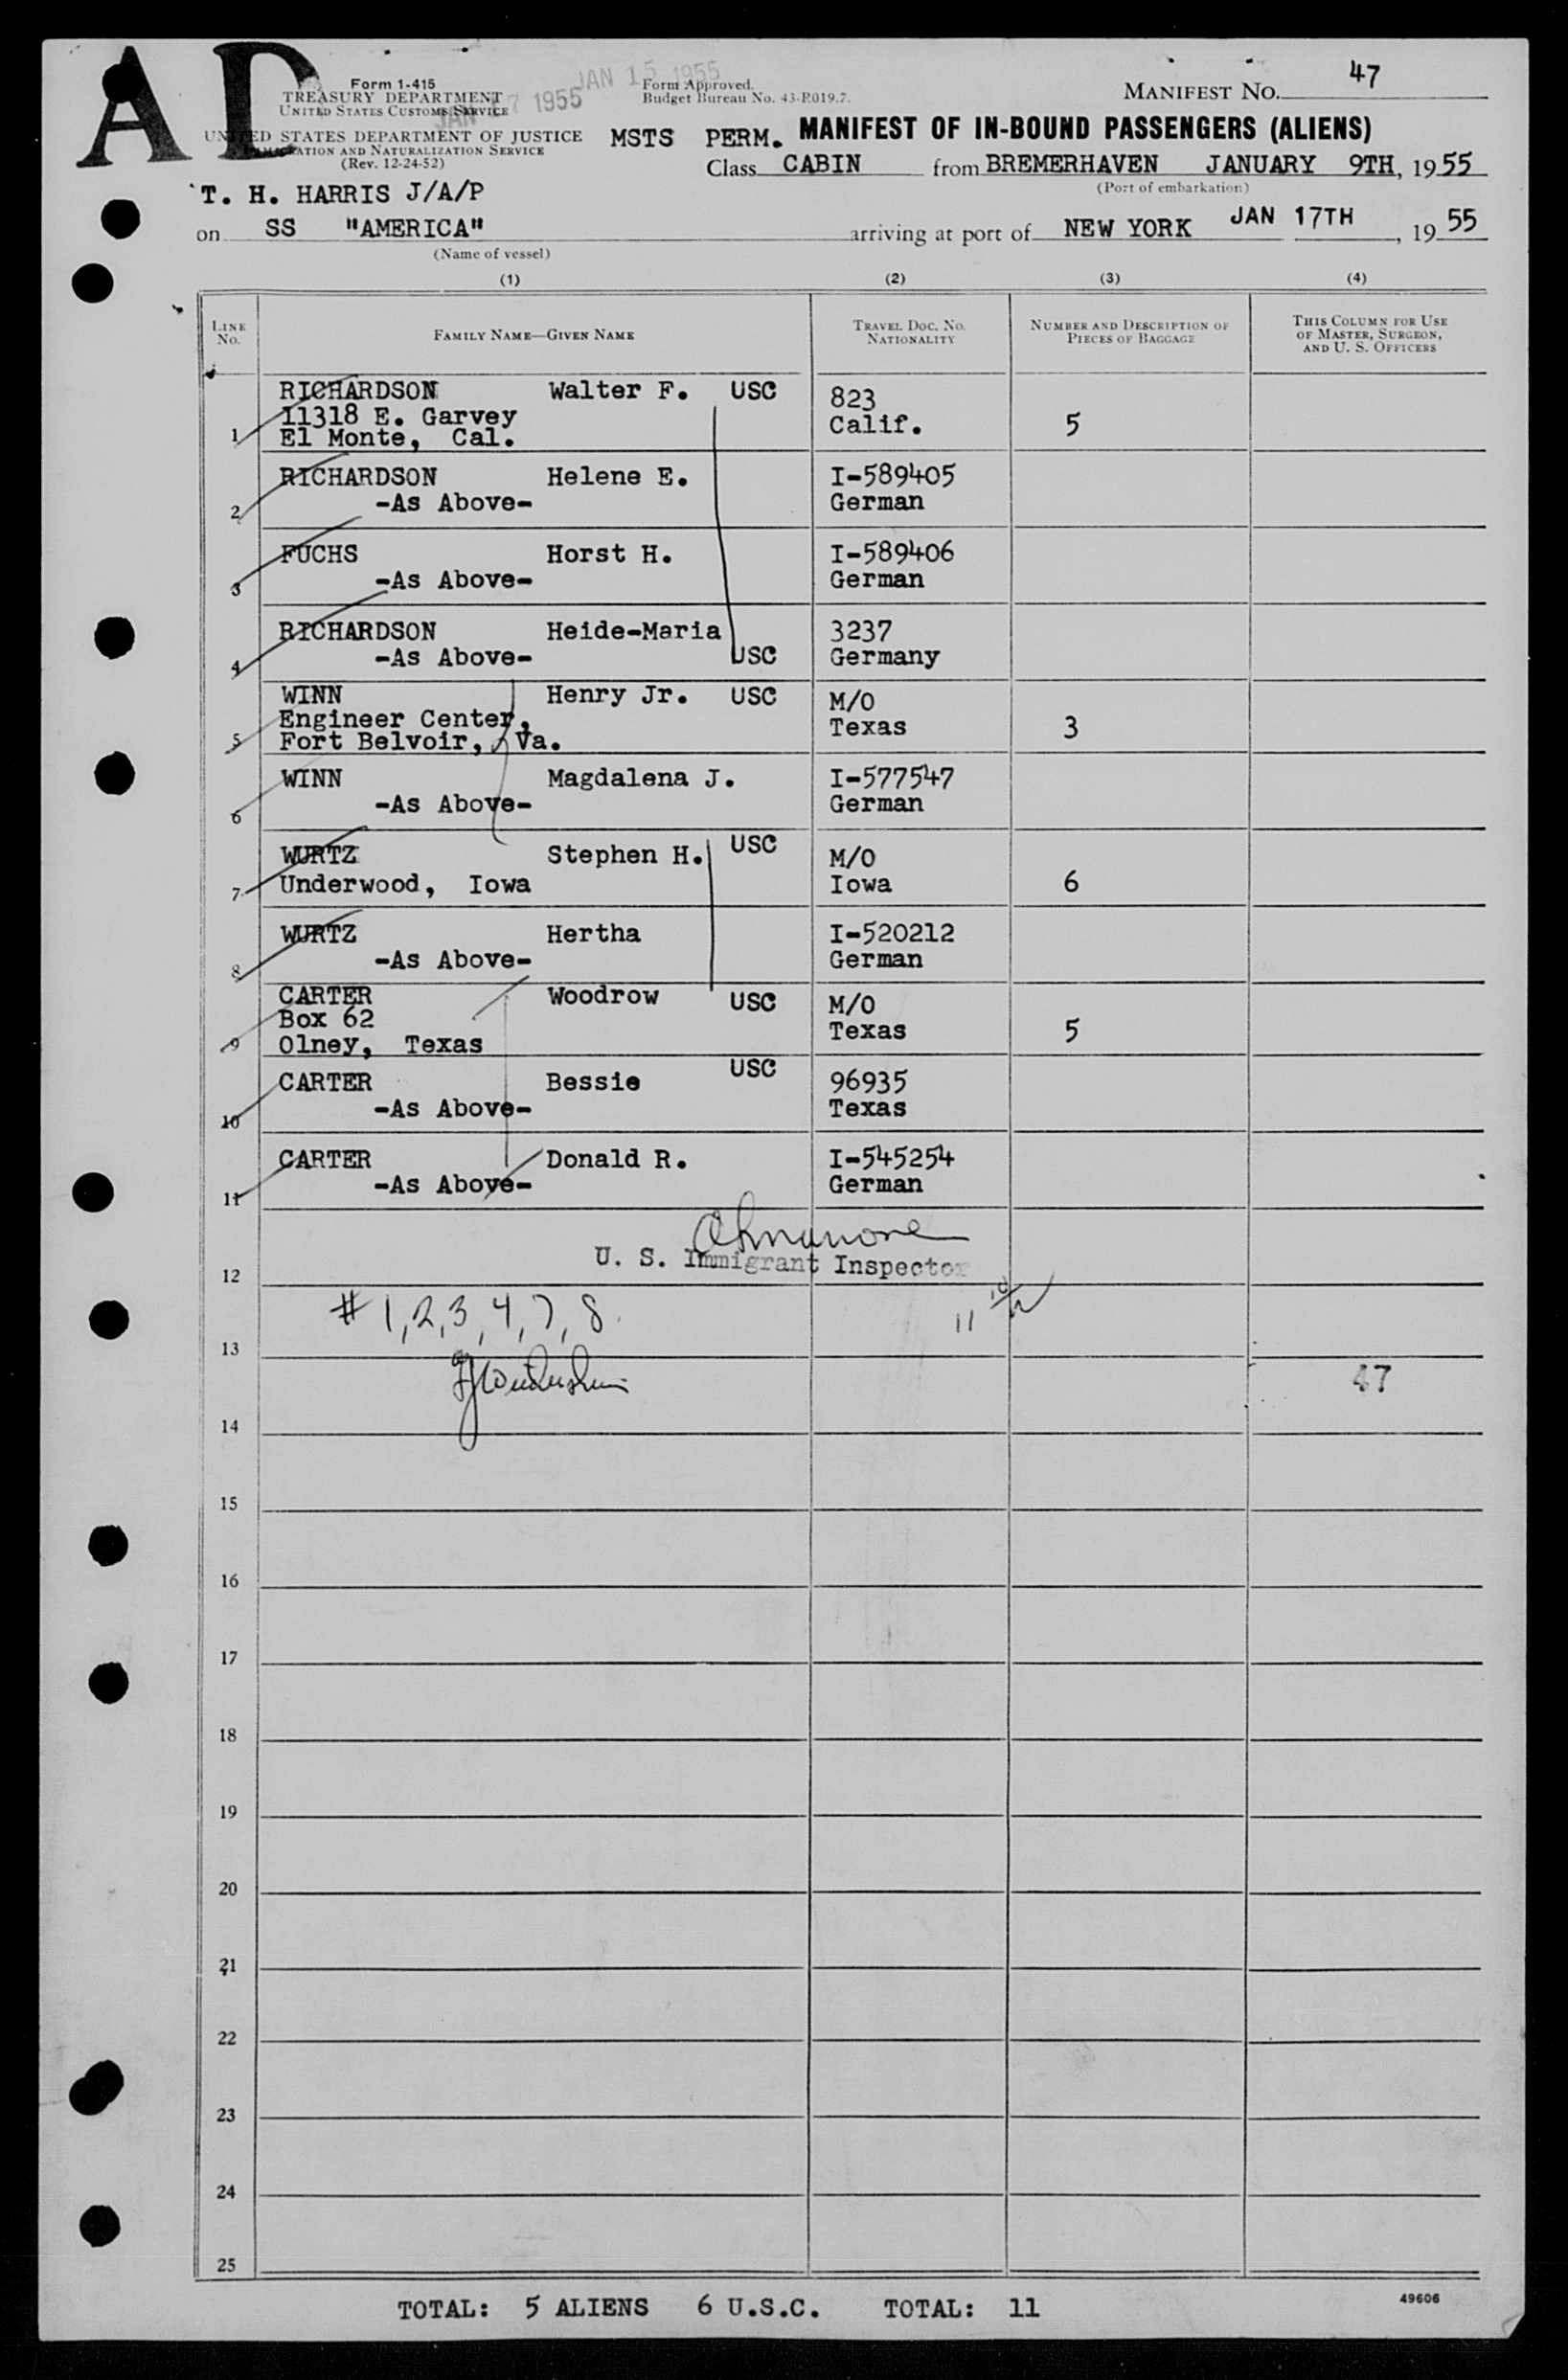 AD
Form 1-415
TREASURY DEPARTMENT
UNITED STATES CUSTOMS SERVICE
UNITED STATES DEPARTMENT OF JUSTICE
IMMIGRATION AND NATURALIZATION SERVICE
(Rev. 12-24-52)
JAN 17 1955
JAN 15 1955
Form Approved.
Budget Bureau No. 43-R019.7.
MANIFEST NO. 47
MSTS PERM. MANIFEST OF IN-BOUND PASSENGERS (ALIENS)
Class CABIN from BREMERHAVEN JANUARY 9TH, 1955
(Port of embarkation)
T. H. HARRIS J/A/P
on SS "AMERICA" arriving at port of NEW YORK JAN 17TH, 1955
(Name of vessel)
(1) (2) (3) (4)
LINE NO. FAMILY NAME—GIVEN NAME TRAVEL DOC. NO. NATIONALITY NUMBER AND DESCRIPTION OF PIECES OF BAGGAGE THIS COLUMN FOR USE OF MASTER, SURGEON, AND U. S. OFFICERS
RICHARDSON Walter F. USC 823
11318 E. Garvey Calif. 5
1 El Monte, Cal.
RICHARDSON Helene E. I-589405
2 -As Above- German
FUCHS Horst H. I-589406
3 -As Above- German
RICHARDSON Heide-Maria 3237
4 -As Above- USC Germany
WINN Henry Jr. USC M/O
Engineer Center, Texas 3
5 Fort Belvoir, Va.
WINN Magdalena J. I-577547
6 -As Above- German
WURTZ Stephen H. USC M/O
7 Underwood, Iowa Iowa 6
WURTZ Hertha I-520212
8 -As Above- German
CARTER Woodrow USC M/O
Box 62 Texas 5
9 Olney, Texas
CARTER Bessie USC 96935
10 -As Above- Texas
CARTER Donald R. I-545254
11 -As Above- German
U. S. Immigrant Inspector
12
# 1,2,3,4,7,8.
11
13
47
14
15
16
17
18
19
20
21
22
23
24
25
TOTAL: 5 ALIENS 6 U.S.C. TOTAL: 11
49606